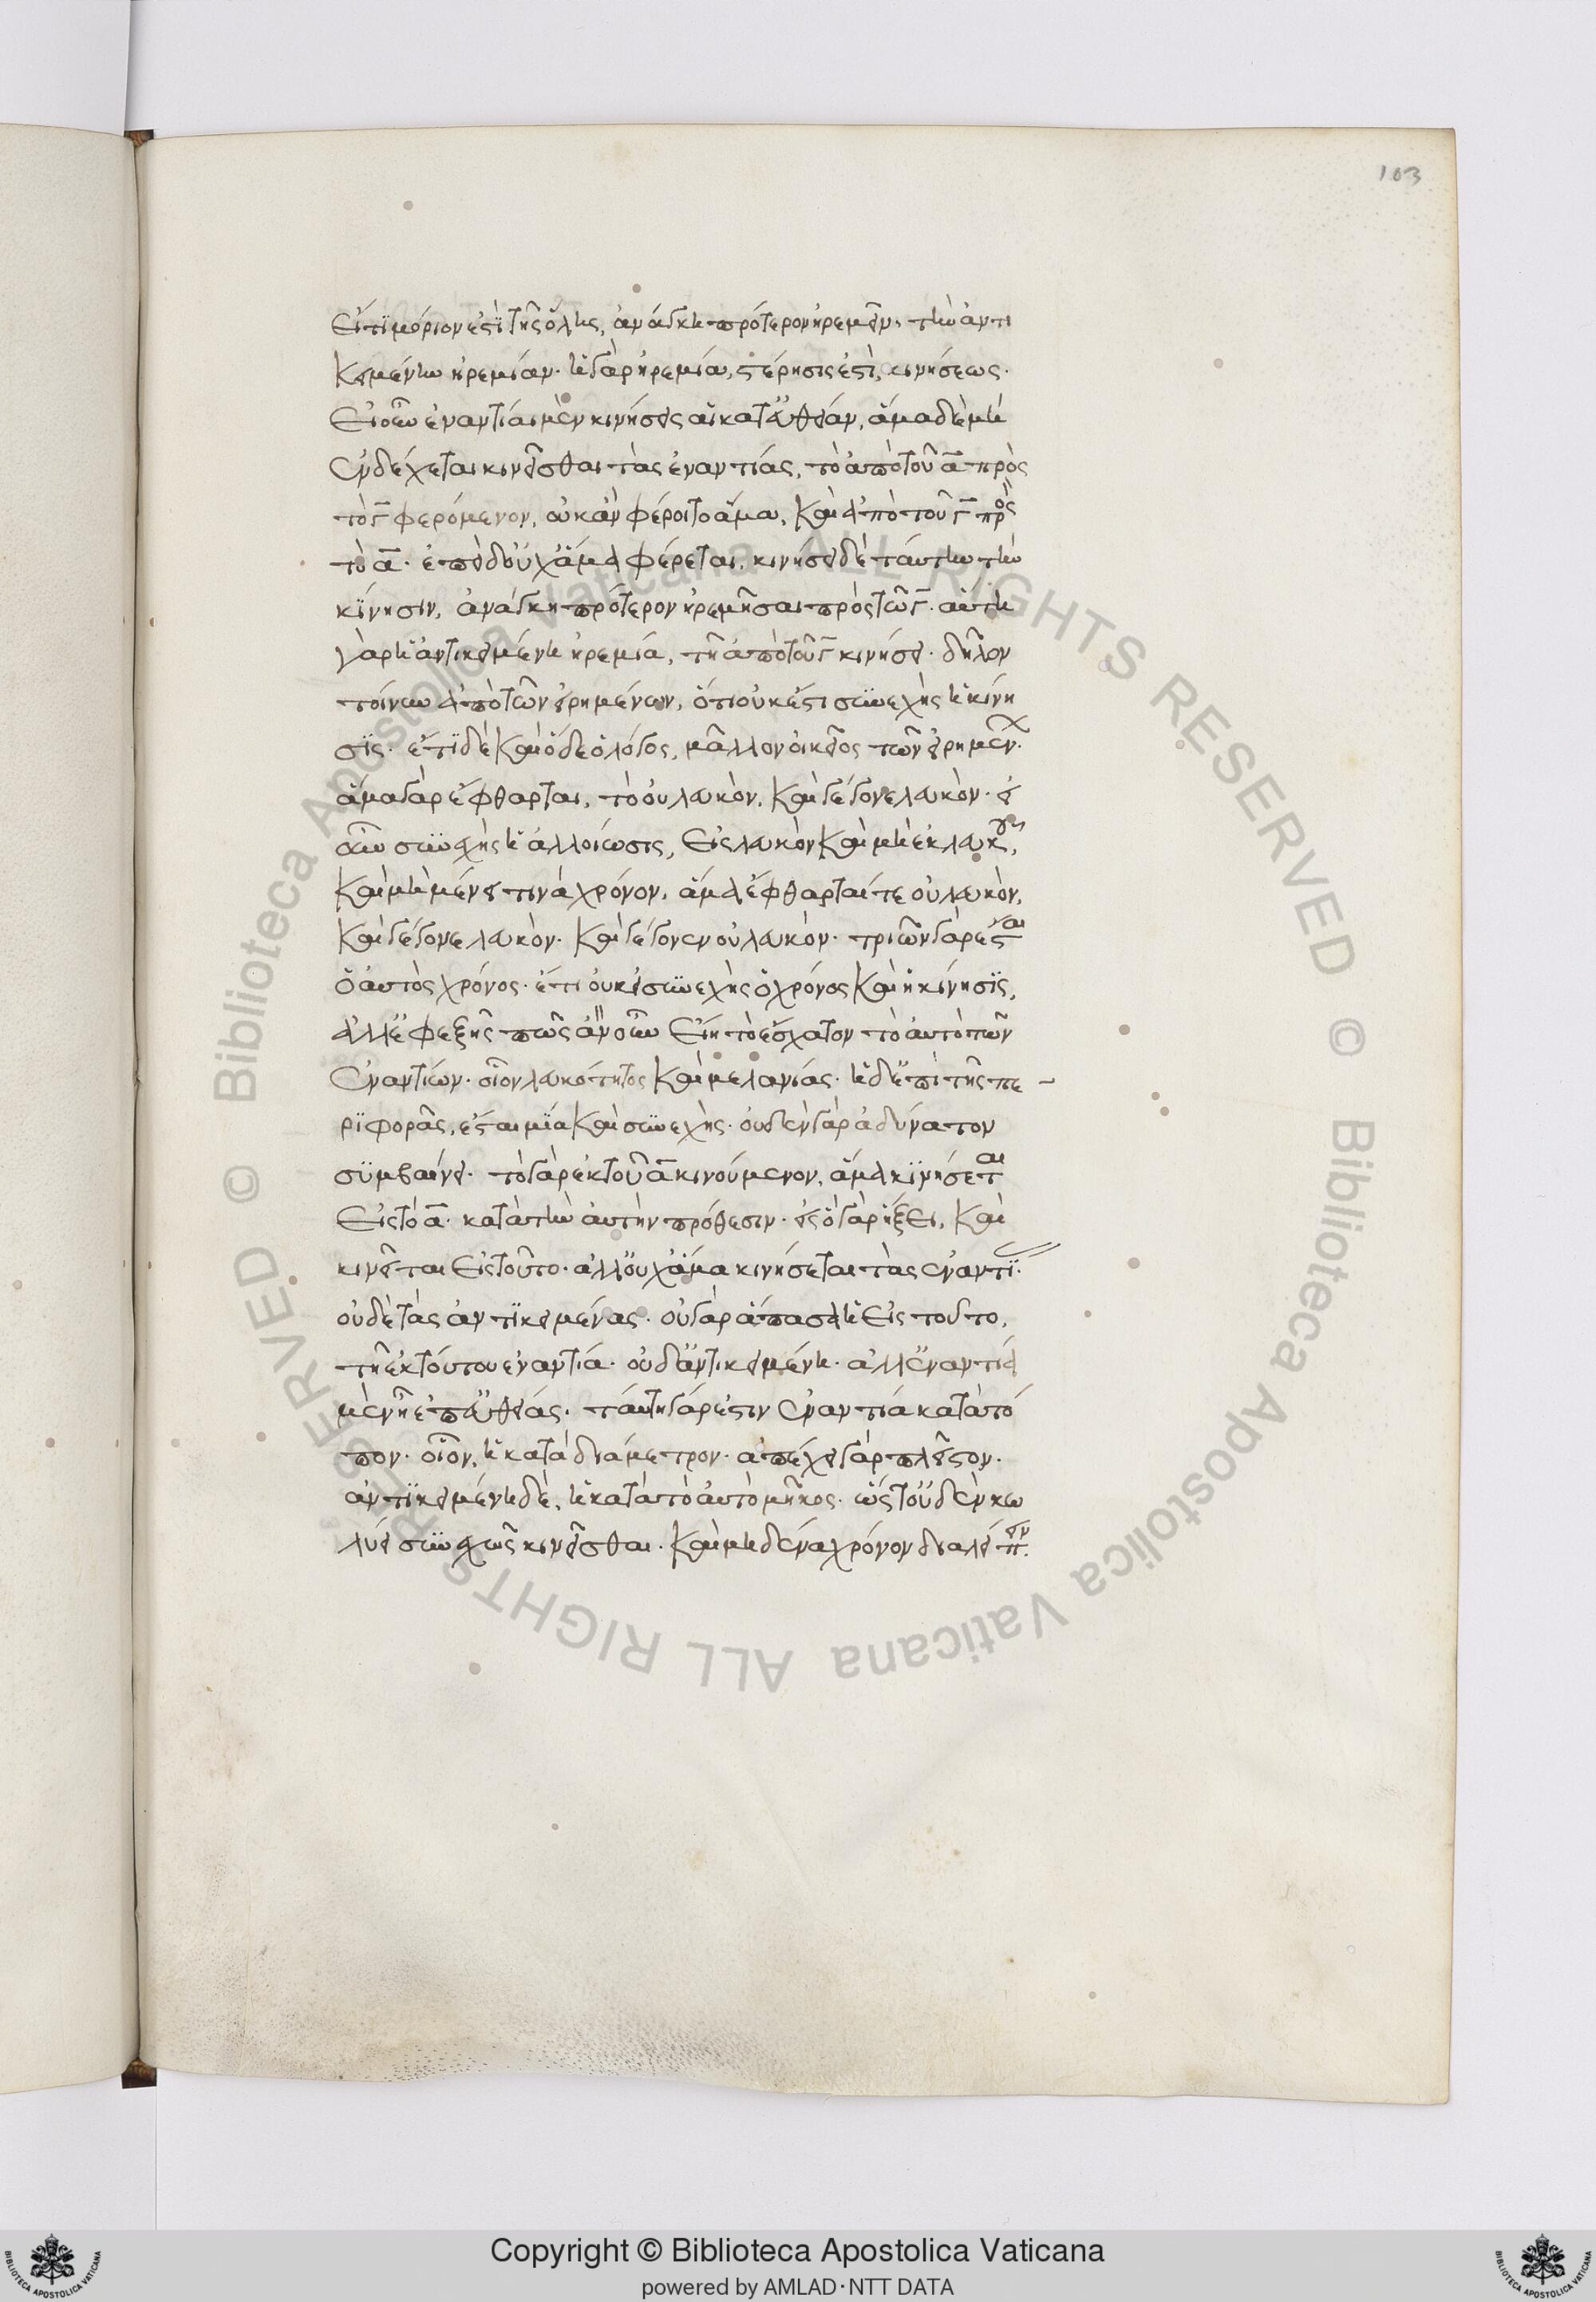 103
εἴ τι μόριόν ἐστι τῆς ὅλης, ἀνάγκη πρότερον ἠρεμεῖν, τὴν ἀντι
κειμένην ἠρεμίαν. ἡ γὰρ ἠρεμία, στέρησίς ἐστι, κινήσεως.
εἰ οὖν ἐναντίαι μὲν κινήσεις αἱ κατ' εὐθεῖαν, ἅμα δὲ μὴ
ἐνδέχεται κινεῖσθαι τὰς ἐναντίας, τὸ ἀπὸ τοῦ α πρὸς
τὸ γ φερόμενον, οὐκ ἂν φέροιτο ἅμα, καὶ ἀπὸ τοῦ γ πρὸς
τὸ α. ἐπεὶ δ' οὐχ ἅμα φέρεται, κινήσει δὲ ταύτην τὴν
κίνησιν, ἀνάγκη πρότερον ἠρεμῆσαι πρὸς τῶ γ. αὕτη
γὰρ ἡ ἀντικειμένη ἠρεμία, τῆ ἀπὸ τοῦ γ κινήσει. δῆλον
τοίνυν ἀπὸ τῶν εἰρημένων, ὅτι οὐκ ἔστι συνεχὴς ἡ κίνη
σις. ἔτι δὲ καὶ ὅδε ὁ λόγος, μᾶλλον οἰκεῖος τῶν εἰρημένων.
ἅμα γὰρ ἔφθαρται, τὸ οὐ λευκὸν, καὶ γέγονε λευκὸν. εἰ
οὖν συνεχὴς ἡ ἀλλοίωσις, εἰς λευκὸν καὶ μὴ ἐκ λευκοῦ,
καὶ μὴ μένει τινὰ χρόνον, ἅμα ἔφθαρται τε οὐ λευκὸν,
καὶ γέγονε λευκὸν. καὶ γέγονεν οὐ λευκὸν. τριῶν γὰρ ἔσται
ὁ αὐτὸς χρόνος. ἔτι οὐκ εἰ συνεχὴς ὁ χρόνος καὶ ἡ κίνησις,
ἀλλ' ἐφεξῆς πῶς ἂν οὖν εἴη τὸ ἔσχατον τὸ αὐτὸ τῶν
ἐναντίων. οἷον λευκότητος καὶ μελανίας. ἡ δ' ἐπὶ τῆς πε-
ριφορᾶς, ἔσται μία καὶ συνεχὴς. οὐδὲν γὰρ ἀδύνατον
συμβαίνει. τὸ γὰρ ἐκ τοῦ α κινούμενον, ἅμα κινήσεται
εἰς τὸ α. κατὰ τὴν αὐτὴν πρόθεσιν. εἰς ὃ γὰρ ἥξει, καὶ
κινεῖται εἰς τοῦτο. ἀλλ' οὐχ ἅμα κινήσεται τὰς ἐναντί.
οὐδὲ τὰς ἀντικειμένας. οὐ γὰρ ἅπασα ἡ εἰς τοῦτο,
τῆ ἐκ τούτου ἐναντία. οὐδ' ἀντικειμένη. ἀλλ' ἐναντία
μὲν ἡ ἐπ' εὐθείας. ταύτη γάρ ἐστιν ἐναντία κατὰ τό
πον. οἷον, ἡ κατὰ διάμετρον. ἀπέχει γὰρ πλεῖστον.
ἀντικειμένη δὲ, ἡ κατὰ τὸ αὐτὸ μῆκος. ὥστ' οὐδὲν κω
λύει συνεχῶς κινεῖσθαι. καὶ μηδένα χρόνον διαλείπειν.
Copyright © Biblioteca Apostolica Vaticana
powered by AMLAD·NTT DATA